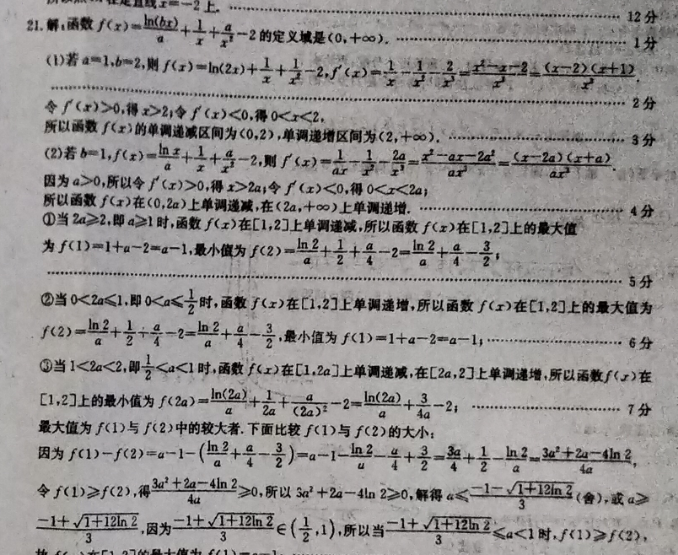 在直线x=-2上. 12分
21.解:函数 f(x)=ln(bx)/a+1/x+a/x²-2的定义域是(0,+∞). 1分
(1)若a=1,b=2,则f(x)=ln(2x)+1/x+1/x²-2,f′(x)=1/x-1/x²-2/x³=(x²-x-2)/x³=(x-2)(x+1)/x³.
2分
令f′(x)>0,得x>2;令f′(x)<0,得0<x<2,
所以函数f(x)的单调递减区间为(0,2),单调递增区间为(2,+∞). 3分
(2)若b=1,f(x)=ln x/a+1/x+a/x²-2,则f′(x)=1/(ax)-1/x²-2a/x³=(x²-ax-2a²)/(ax³)=(x-2a)(x+a)/(ax³).
因为a>0,所以令f′(x)>0,得x>2a;令f′(x)<0,得0<x<2a;
所以函数f(x)在(0,2a)上单调递减,在(2a,+∞)上单调递增. 4分
①当2a≥2,即a≥1时,函数f(x)在[1,2]上单调递减,所以函数f(x)在[1,2]上的最大值
为f(1)=1+a-2=a-1,最小值为f(2)=ln 2/a+1/2+a/4-2=ln 2/a+a/4-3/2;
5分
②当0<2a≤1,即0<a≤1/2时,函数f(x)在[1,2]上单调递增,所以函数f(x)在[1,2]上的最大值为
f(2)=ln 2/a+1/2+a/4-2=ln 2/a+a/4-3/2,最小值为f(1)=1+a-2=a-1; 6分
③当1<2a<2,即1/2<a<1时,函数f(x)在[1,2a]上单调递减,在[2a,2]上单调递增,所以函数f(x)在
[1,2]上的最小值为f(2a)=ln(2a)/a+1/(2a)+a/(2a)²-2=ln(2a)/a+3/(4a)-2; 7分
最大值为f(1)与f(2)中的较大者.下面比较f(1)与f(2)的大小:
因为f(1)-f(2)=a-1-(ln 2/a+a/4-3/2)=a-1-ln 2/a-a/4+3/2=3a/4+1/2-ln 2/a=(3a²+2a-4ln 2)/(4a),
令f(1)≥f(2),得(3a²+2a-4ln 2)/(4a)≥0,所以3a²+2a-4ln 2≥0,解得a≤(-1-√(1+12ln 2))/3(舍),或a≥
(-1+√(1+12ln 2))/3,因为(-1+√(1+12ln 2))/3∈(1/2,1),所以当(-1+√(1+12ln 2))/3≤a<1时,f(1)≥f(2),